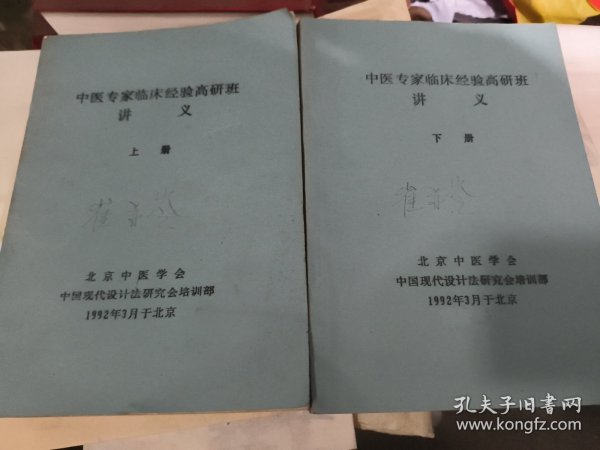 中医专家临床经验高研班
讲 义
上 册
北京中医学会
中国现代设计法研究会培训部
1992年3月于北京
中医专家临床经验高研班
讲 义
下 册
北京中医学会
中国现代设计法研究会培训部
1992年3月于北京
孔夫子旧书网
www.kongfz.com